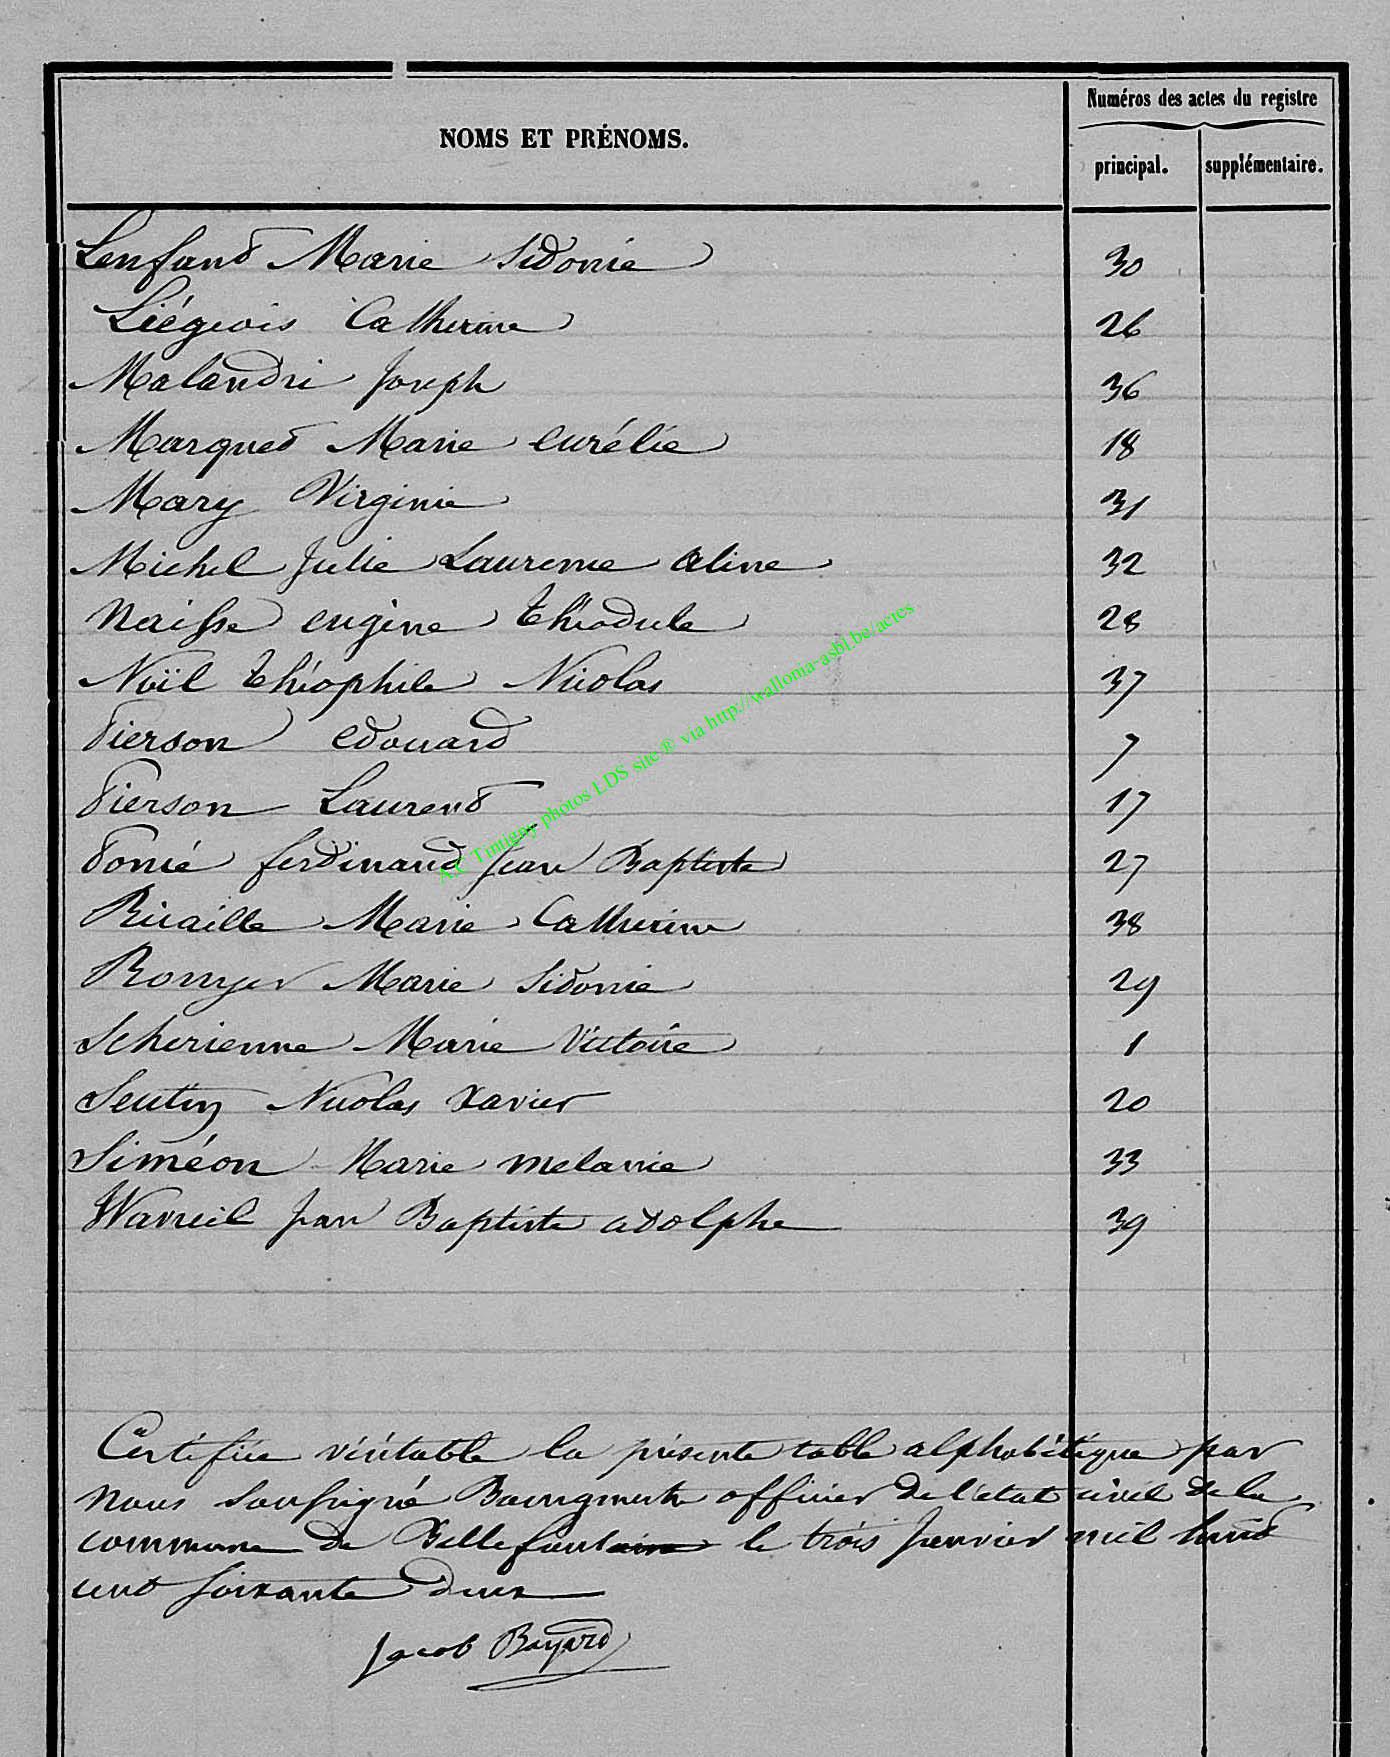 Numéros des actes du registre
NOMS ET PRÉNOMS.
principal. supplémentaire.
Lenfant Marie Sidonie 30
Liégeois Catherine 26
Malandri Joseph 36
Marquet Marie eurélie 18
Mary Virginie 31
Michel Julie Laurence aline 32
Naisse eugène théodule 28
Noïl théophile Nicolas 37
Pierson edouard 7
Pierson Laurent 17
Poncé ferdinand Jean Baptiste 27
Ricaille Marie Catherine 38
Marie Sidonie 29
Scherienne Marie Victoire 1
Seutin Nicolas Xavier 20
Siméon Marie melanie 33
Jean Baptiste adolphe 39
A.C Tintigny photos LDS site ® via http://wallonia-asbl.be/actes
Certifiée véritable la présente table alphabétique par
nous soussigné Bourgmestre officier de l'etat civil de la
commune de Bellefontaine le trois Janvier mil huit
cent soixante deux
Jacob Bayard